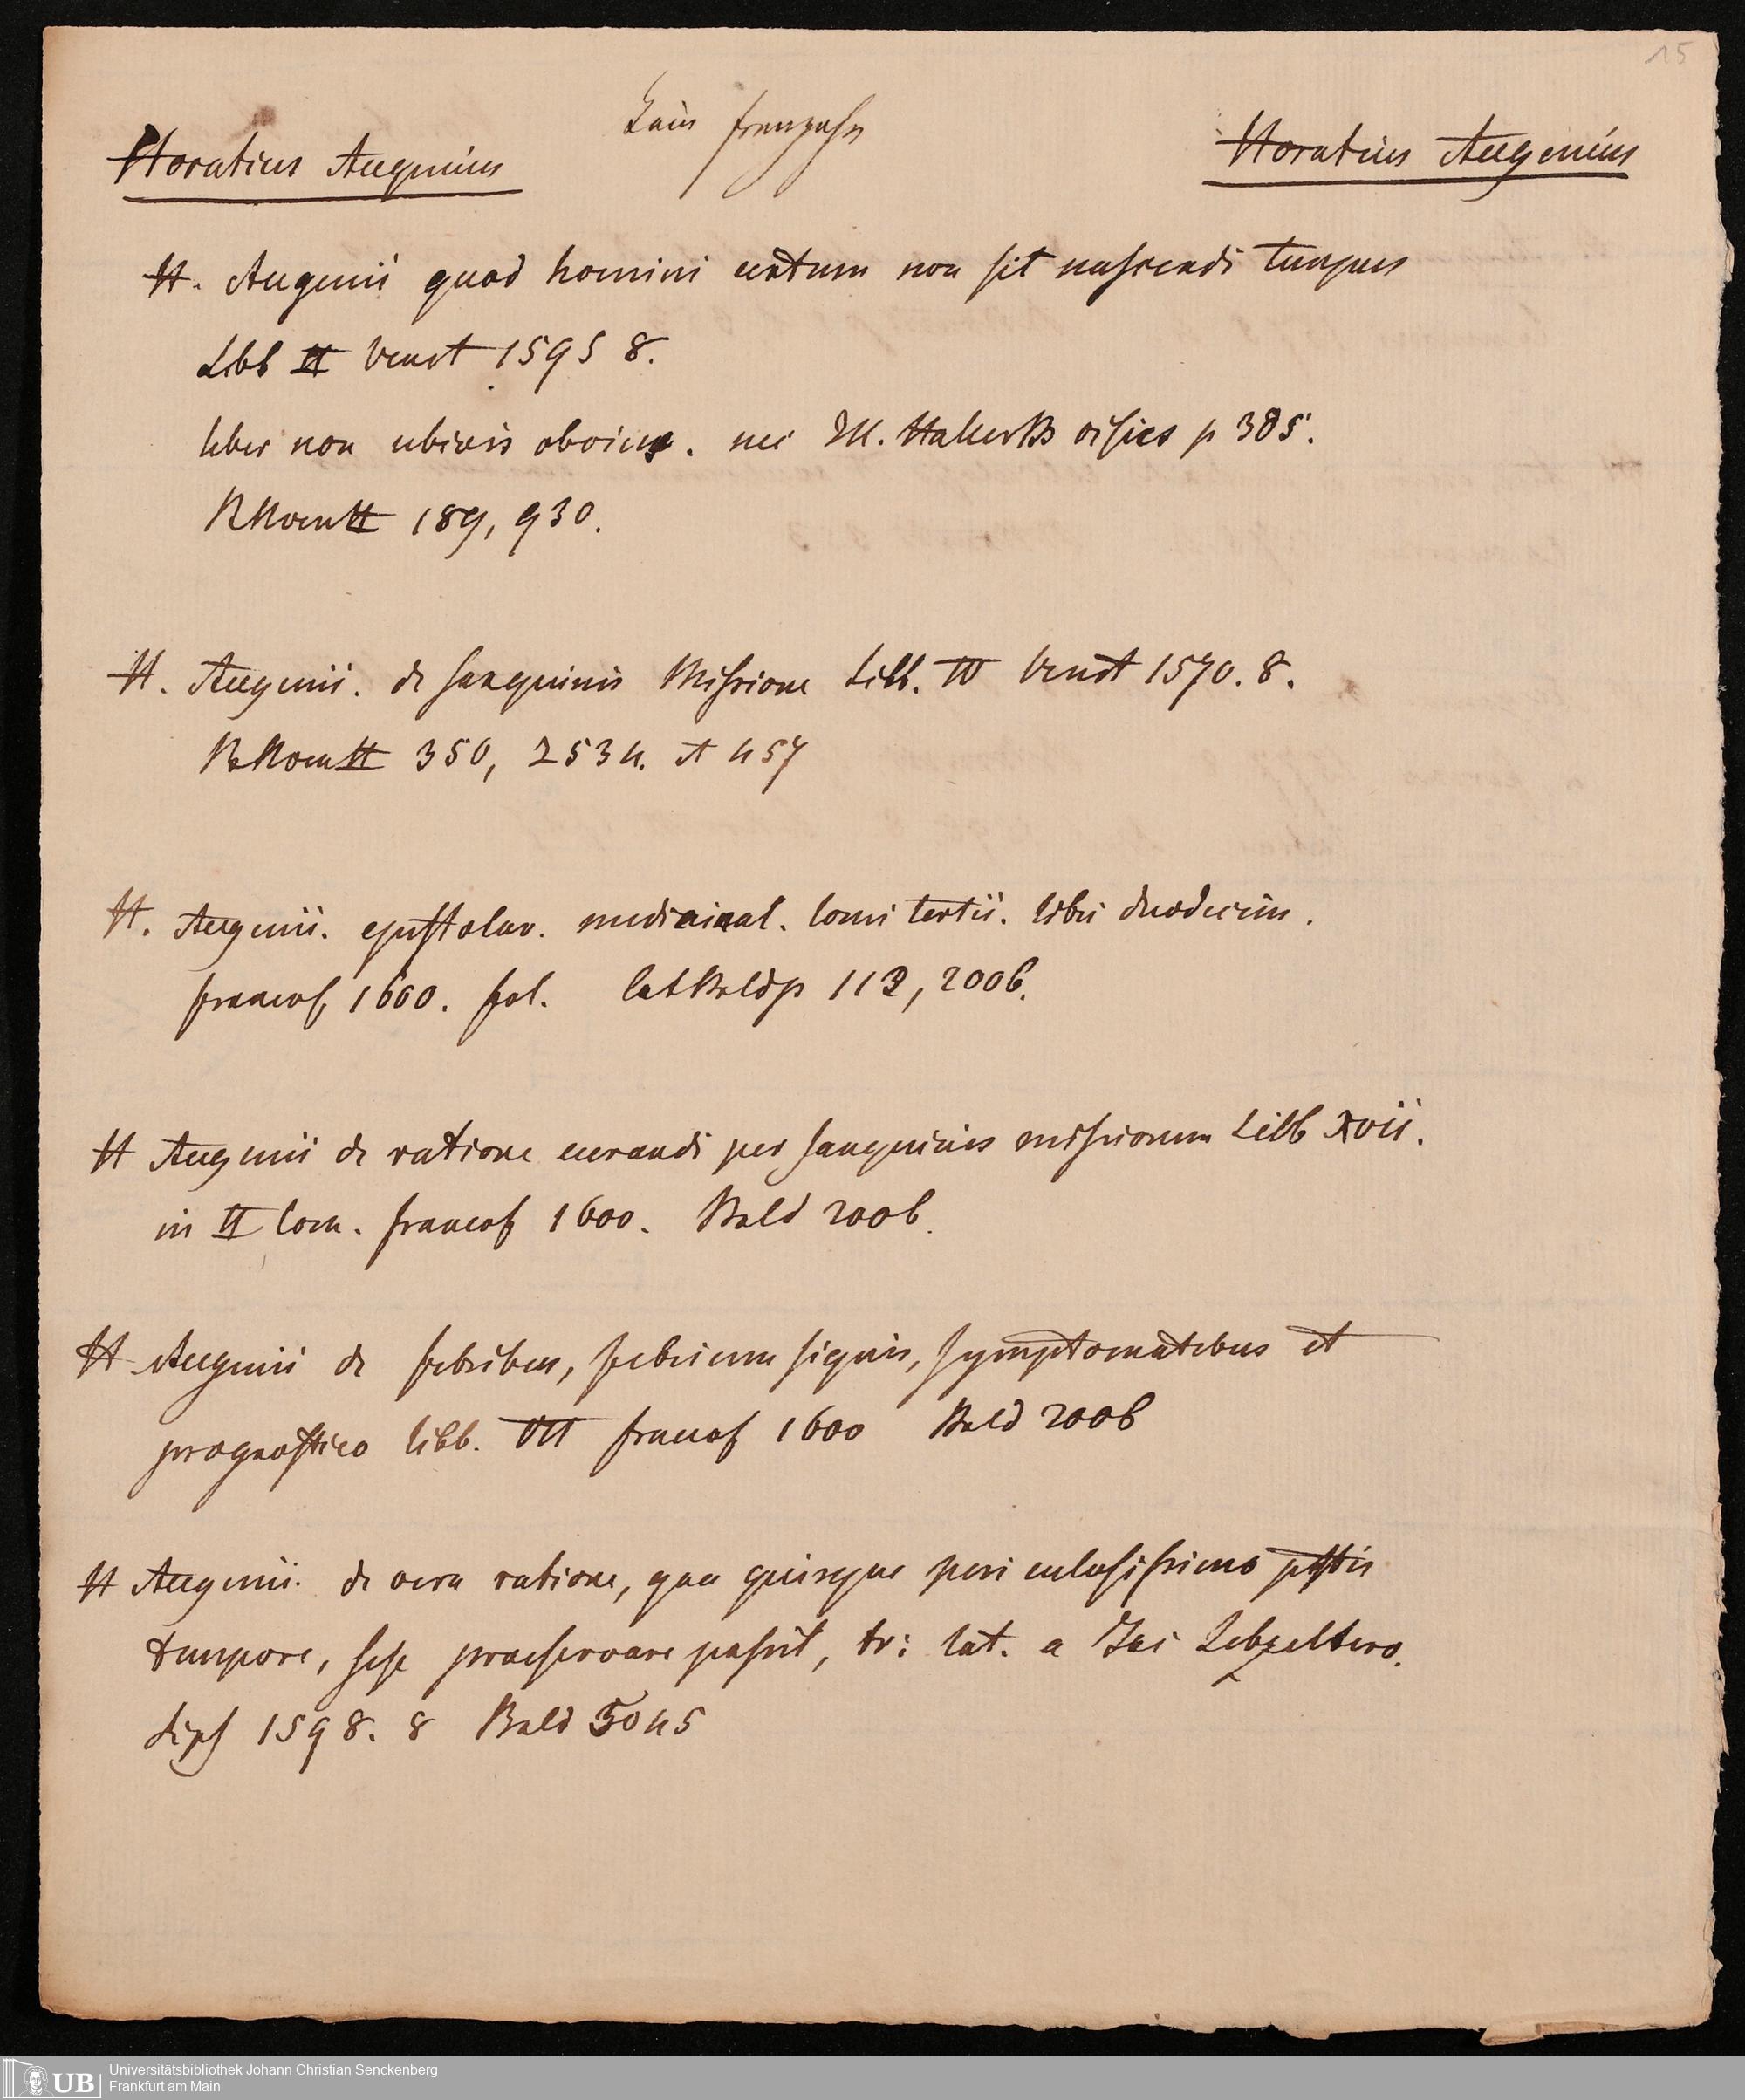 15
Horatius Augenius
Kein franzose
Horatius Augenius
H. Augenii quod homini certum non sit nascendi tempus
Libb II Venet 1595 8.
liber non ubivis obvius. nec M. Hallerth p 385.
189, 930.
H. Augenii. de sanguinis Missione Libb. IV Venet 1570. 8.
350, 2534. et 457
H. Augenii. epistolar. medicinal. tomi tertii. libri duodecim.
francof 1600. fol. Bald p 113, 2006.
H Augenii de ratione curandi per sanguinis missionem Libb XVii.
in II tom. francof 1600. Bald 2006.
H Augenii de febribus, febrium signis, symptomatibus et
prognostico libb. VII francof 1600 Bald 2006
H Augenii. de vera ratione, qua quisque periculosissimo pestis
tempore, sese praeservare possit, tr: lat. a Zebzeltero.
Lips 1598. 8 Bald 5045
UB
Universitätsbibliothek Johann Christian Senckenberg
Frankfurt am Main